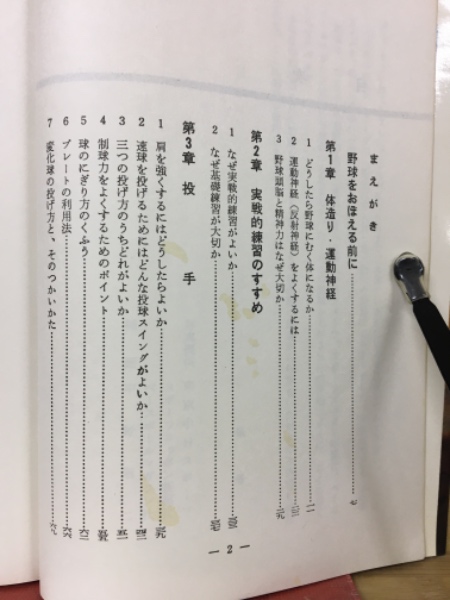 まえがき
野球をおぼえる前に……七
第1章 体造り・運動神経
1 どうしたら野球にむく体になるか……一一
2 運動神経（反射神経）をよくするには……
3 野球頭脳と精神力はなぜ大切か……二九
第2章 実戦的練習のすすめ
1 なぜ実戦的練習がよいか……
2 なぜ基礎練習が大切か……
第3章 投手
1 肩を強くするにはどうしたらよいか……
2 速球を投げるためにはどんな投球スイングがよいか……
3 三つの投げ方のうちどれがよいか……
4 制球力をよくするためのポイント……
5 球のにぎり方のくふう……
6 プレートの利用法……
7 変化球の投げ方と、そのつかいかた……
— 2 —